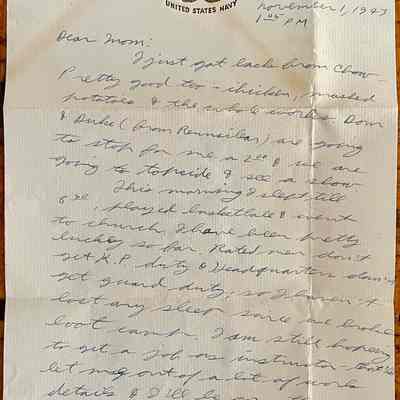 UNITED STATES NAVY
November 1, 1943
1 05 PM
Dear Mom:
I just got back from chow -
Pretty good too - chicken, mashed
potatoes & the whole works. Dom
& Duke (from Rensselaer) are going
to stop for me a 2 & we are
going to topside & see a show
This morning I slept till
played basketball & went
to church. I have been pretty
lucky so far. Rated men don't
get K.P. duty & Headquarters
get guard duty, so I haven't
lost any sleep since we broke
boot camp. I am still hoping
to get a job as instructor - that'll
let me out of a lot of work
details & I'll be